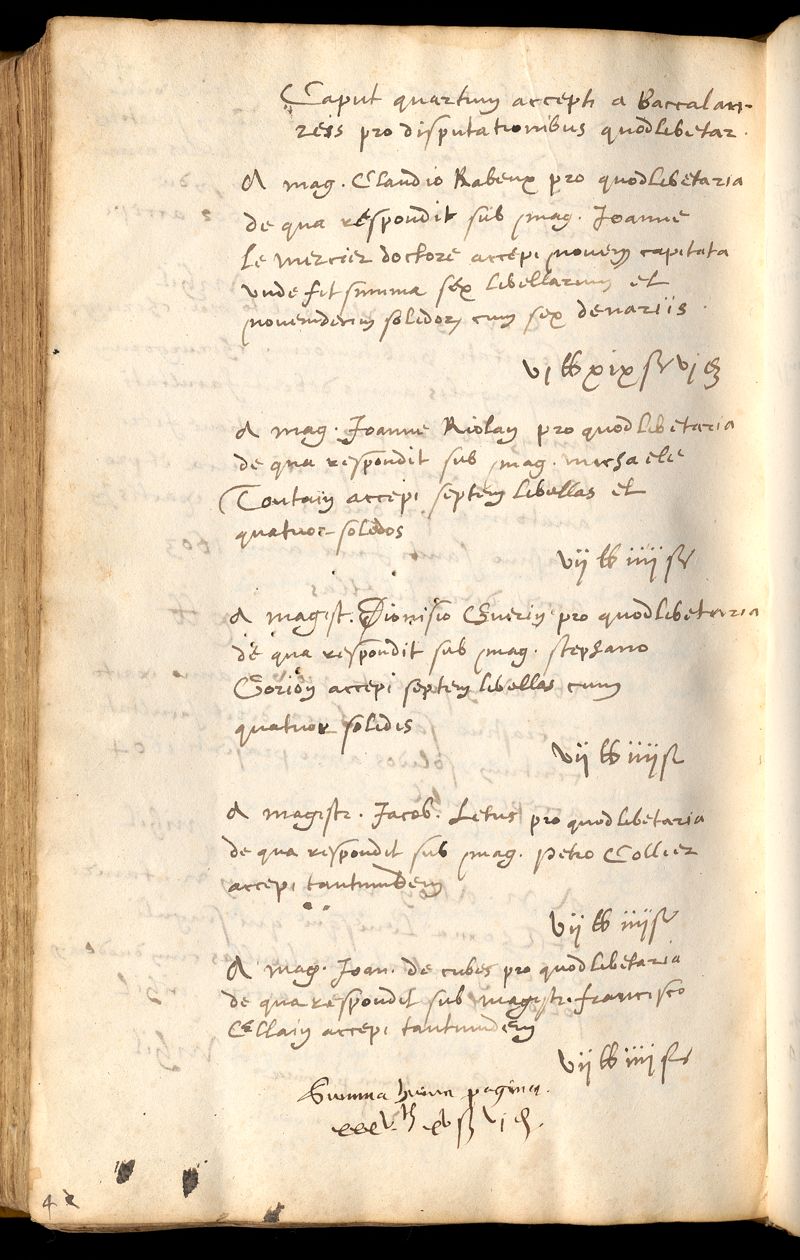 Caput quartum accepti a Baccalau-
reis pro disputationibus quodlibetar.
A mag. Claudio Rabeux pro quodlibetaria
de qua respondit sub mag. Joanne
le mercier doctore accepi novem capitata
unde fit summa sex libellarum et
novemdecim solidor cum sex denariis.
vi lb xix s vi d
A mag. Joanne Riolan pro quodlibetaria
de qua respondit sub mag. michaele
Toutain accepi septem libellas et
quatuor solidos
vii lb iiii s
A magist. Dionisio Guerin pro quodlibetaria
de qua respondit sub mag. stephano
Gorion accepi septem libellas cum
quatuor solidis
vii lb iiii s
A magistr. Jacob. Letus pro quodlibetaria
de qua respondit sub mag. Petro Collier
accepi tantundem
vii lb iiii s
A mag. Joan. de cubes pro quodlibetaria
de qua respondit sub magistr. francisco
Cellain accepi tantundem
vii lb iiii s
Summa huius paginae.
xxxv lb xv s vi d.
42